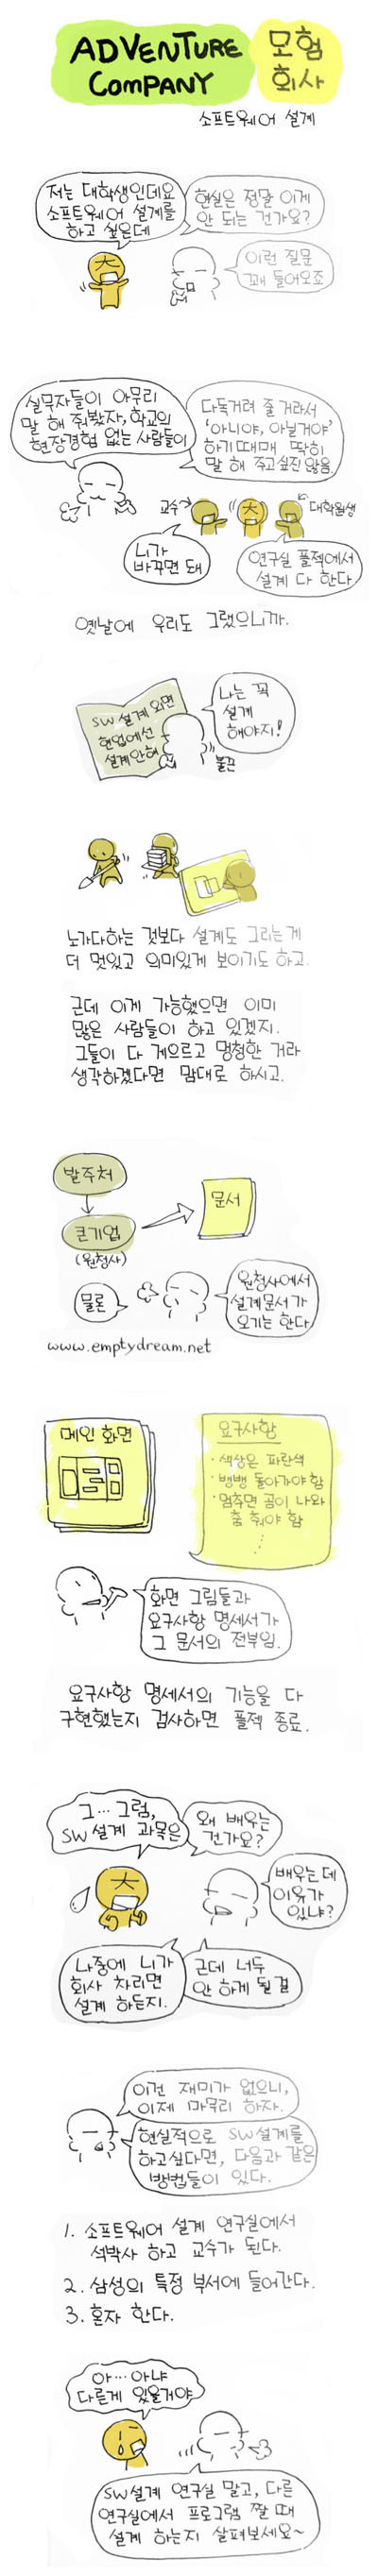 ADVENTURE
COMPANY
모험
회사
소프트웨어 설계
저는 대학생인데요
소프트웨어 설계를
하고 싶은데
현실은 정말 이게
안 되는 건가요?
이런 질문
꽤 들어오죠
실무자들이 아무리
말 해 줘봤자, 학교의
현장경험 없는 사람들이
다독거려 줄 거라서
'아니야, 아닐거야'
하기때매 딱히
말 해 주고싶진 않음.
교수→
대학원생
니가
바꾸면 돼
연구실 플젝에서
설계 다 한다
옛날에 우리도 그랬으니까.
SW 설계 외면
현업에선
설계안해
나는 꼭
설계
해야지!
불끈
노가다하는 것보다 설계도 그리는게
더 멋있고 의미있게 보이기도 하고.
근데 이게 가능했으면 이미
많은 사람들이 하고 있겠지.
그들이 다 게으르고 멍청한 거라
생각하겠다면 맘대로 하시고.
발주처
큰기업
(원청사)
문서
물론
원청사에서
설계문서가
오기는 한다
www.emptydream.net
메인 화면
요구사항
·색상은 파란색
·뱅뱅 돌아가야 함
·멈추면 곰이 나와
춤 춰야 함
화면 그림들과
요구사항 명세서가
그 문서의 전부임.
요구사항 명세서의 기능을 다
구현했는지 검사하면 플젝 종료.
그... 그럼,
SW 설계 과목은
왜 배우는
건가요?
배우는데
이유가
있냐?
나중에 니가
회사 차리면
설계 하든지.
근데 너두
안 하게 될 걸
이건 재미가 없으니,
이제 마무리 하자.
현실적으로 SW설계를
하고싶다면, 다음과 같은
방법들이 있다.
1. 소프트웨어 설계 연구실에서
석박사 하고 교수가 된다.
2. 삼성의 특정 부서에 들어간다.
3. 혼자 한다.
아... 아냐
다른게 있을거야
SW설계 연구실 말고, 다른
연구실에서 프로그램 짤 때
설계 하는지 살펴보세요~